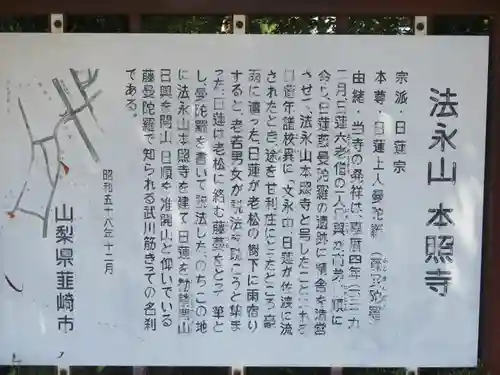 法永山 本照寺
宗派・日蓮宗
本尊・日蓮上人曼陀羅（藤
由緒・当寺の発祥は、暦四年（
二月日蓮六老僧の一人日興
会り日蓮藤曼陀羅の遺跡に精舎を造営
させて、法永山本照寺と号したことによる
日蓮年譜校異に「文永 日蓮が佐渡に流
されたとき、途を甘利庄にとったところ豪
雨に遭った。日蓮が老松の樹下に雨宿り
すると、老若男女が説法を聴こうと集ま
った。日蓮は老松に絡む藤蔓をとって筆と
し、曼陀羅を書いて説法した。のちこの地
に法永山本照寺を建て 日蓮を勧請開山
日興を開山 日順を准開山と仰いでいる
藤曼陀羅で知られる武川筋きっての名刹
である。
昭和五十八年十二月
山梨県韮崎市